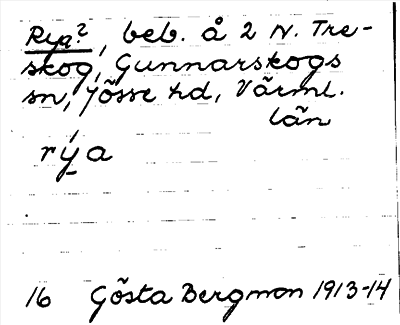 Rya?, beb. å 2 N. Tre-
skog, Gunnarskogs
sn, Jösse hd, Värml.
län
rýa
16 Gösta Bergman 1913-14